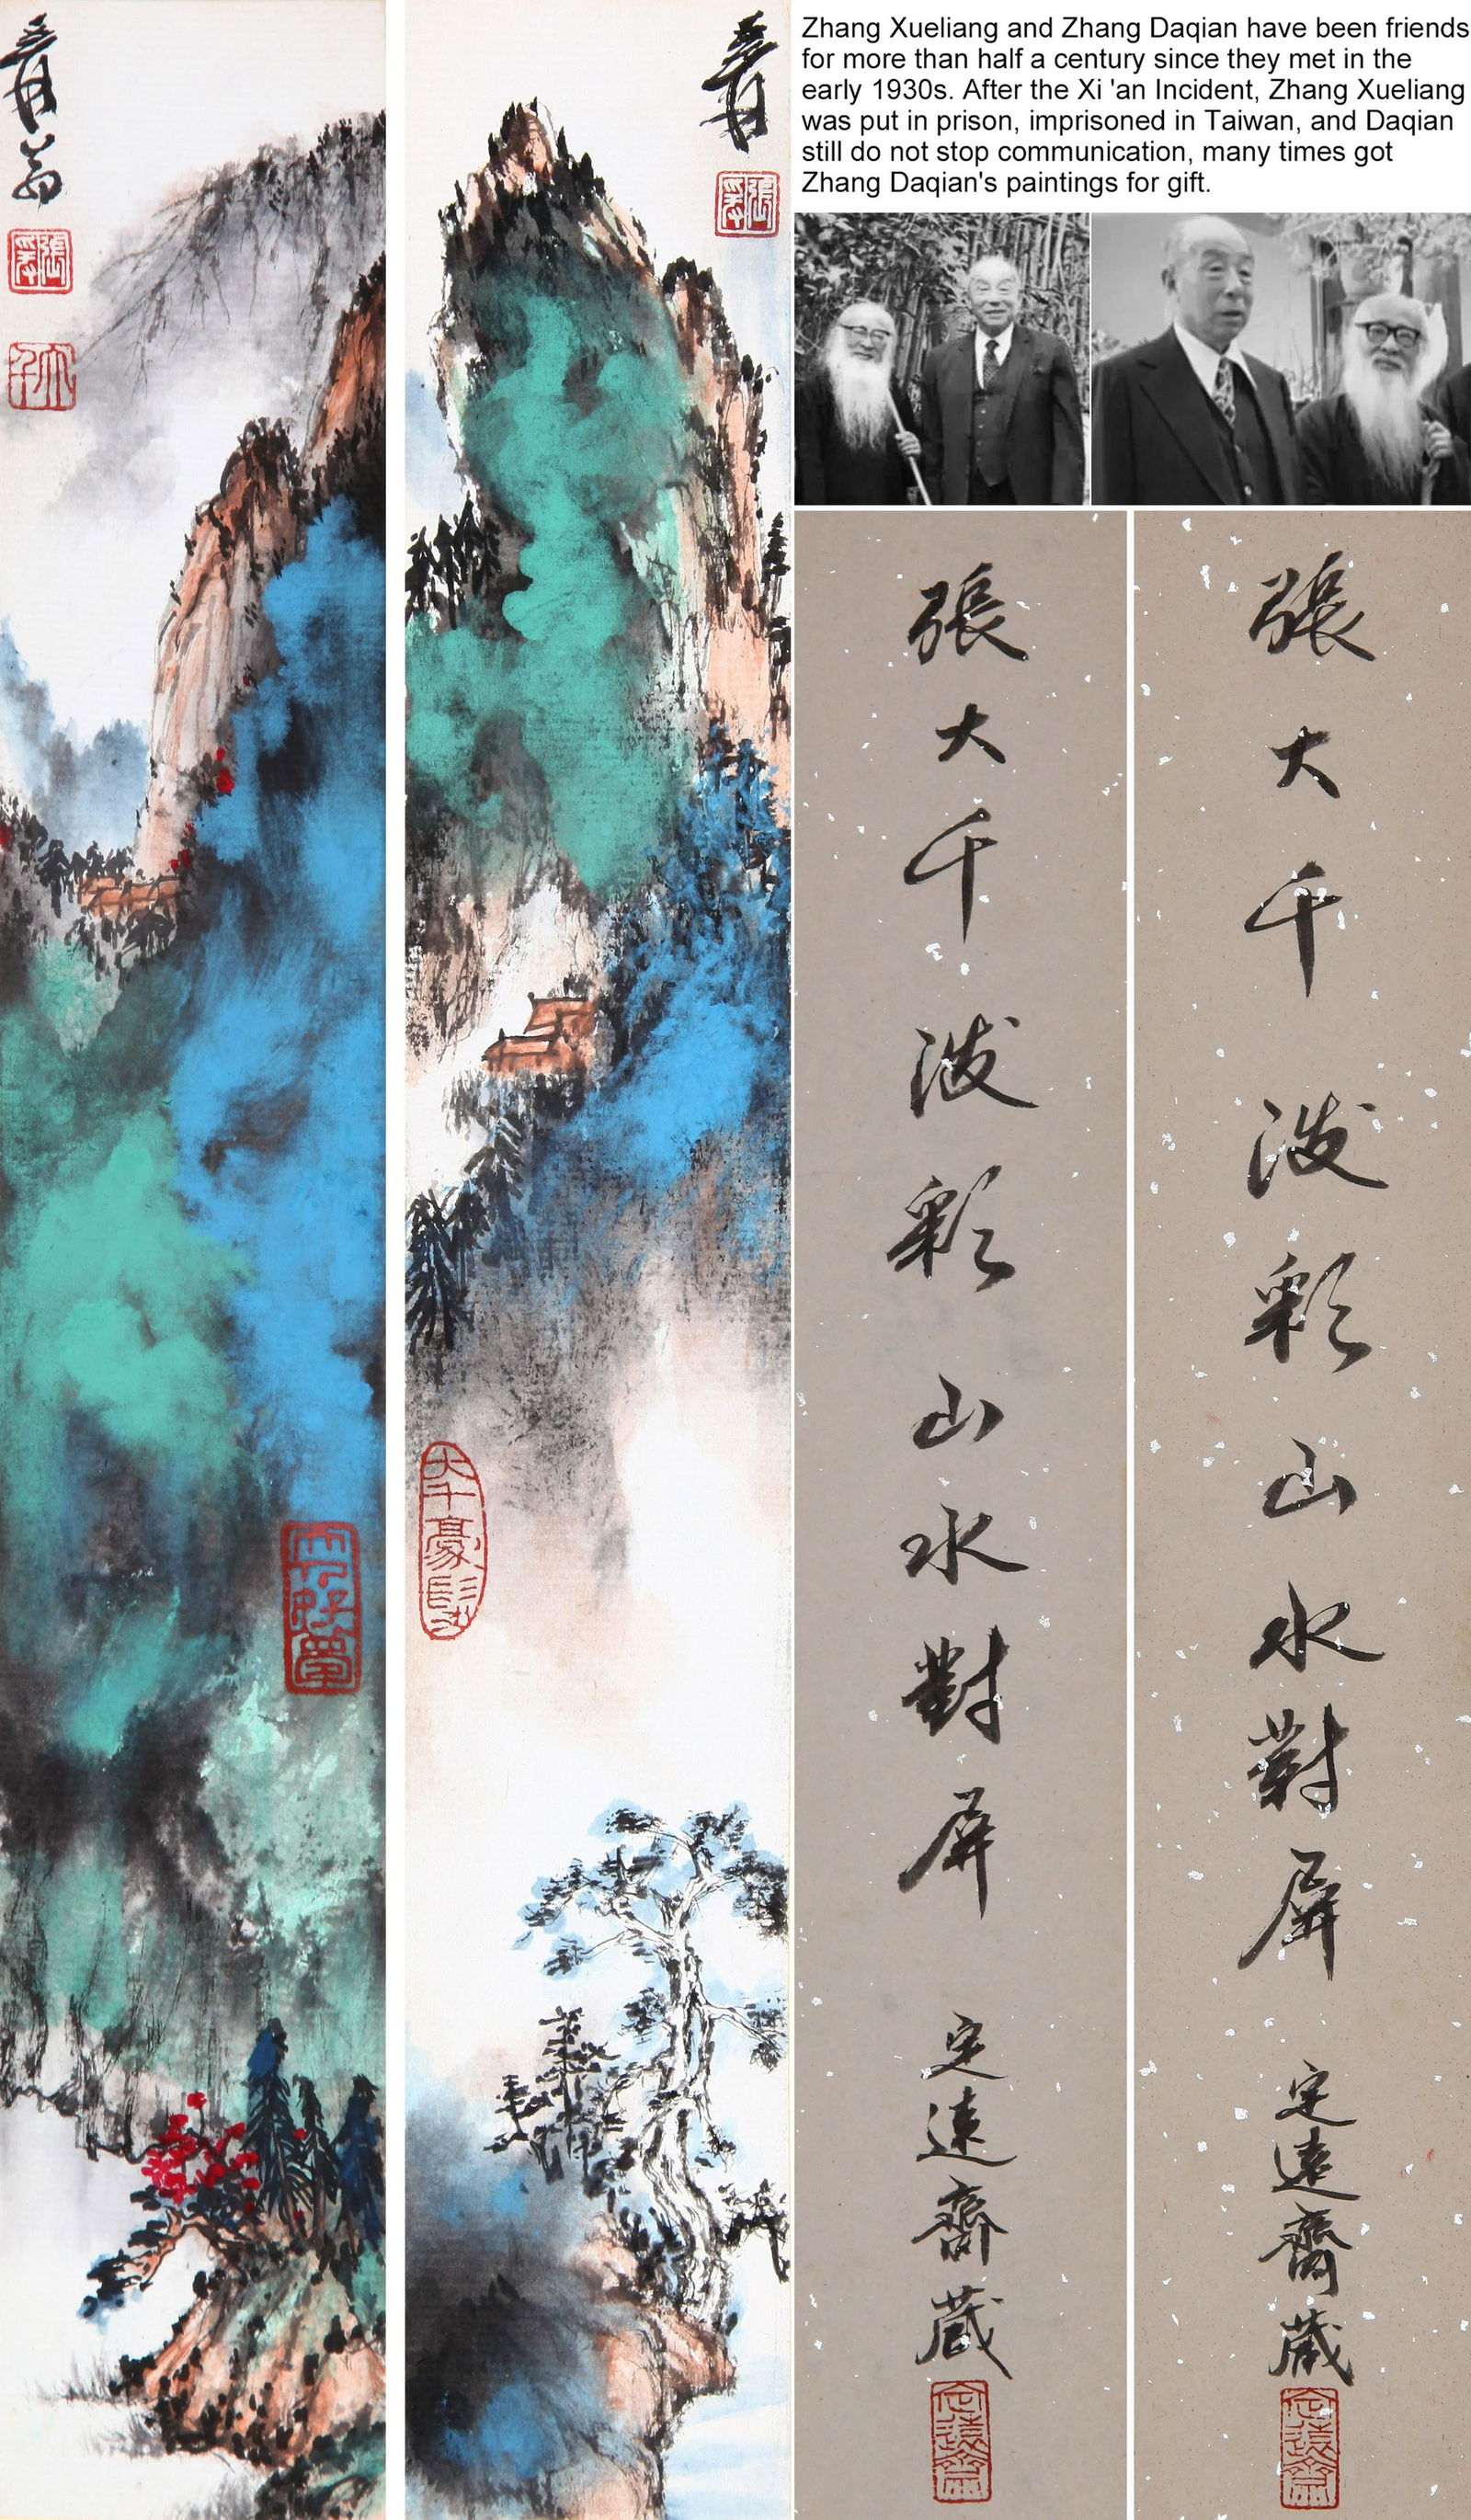 Zhang Xueliang and Zhang Daqian have been friends
for more than half a century since they met in the
early 1930s. After the Xi 'an Incident, Zhang Xueliang
was put in prison, imprisoned in Taiwan, and Daqian
still do not stop communication, many times got
Zhang Daqian's paintings for gift.
爰翁
爰
大千豪髮
張大千潑彩山水對屏 定遠齋藏
定遠齋
張大千潑彩山水對屏 定遠齋藏
定遠齋